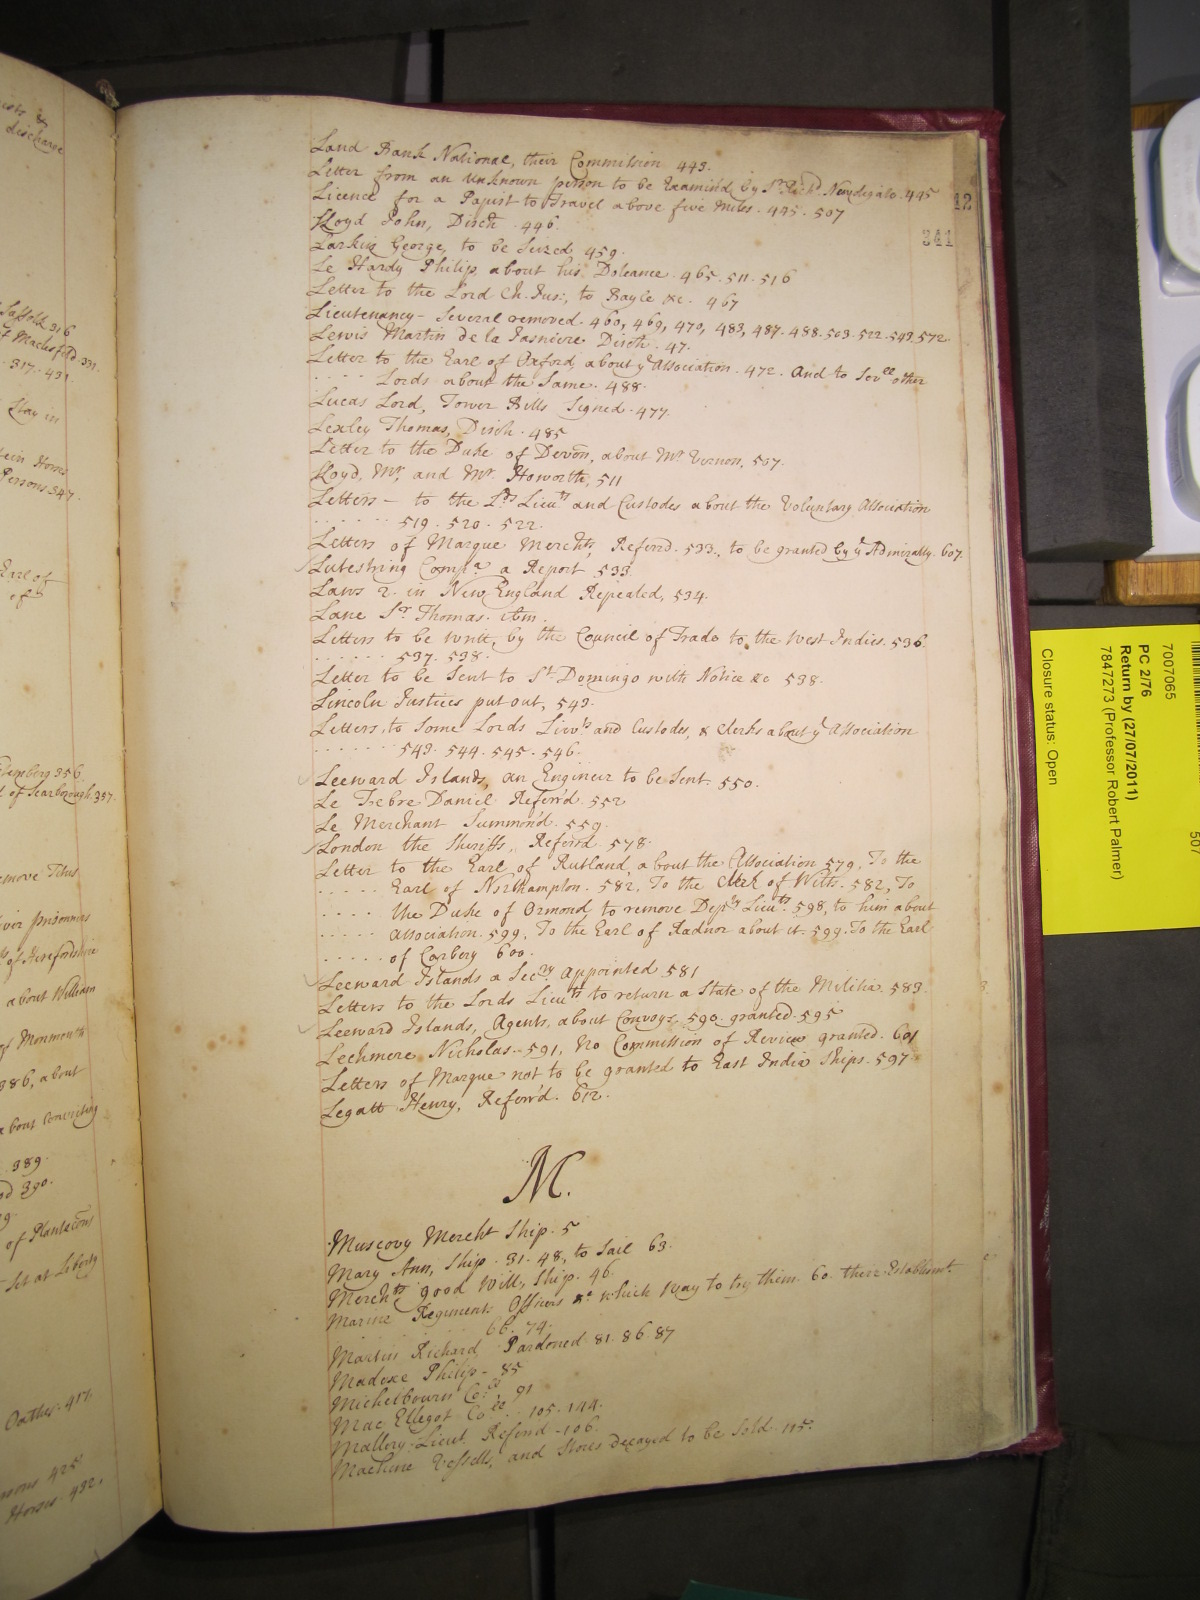 ests &
discharge
Suffolk 316
of Macclesfeld 331.
317. 431
Stay in
tein Horses
Persons 347.
Earl of
of
Stemberg 356
l. of Scarborough. 357.
emove Titus
over prisoners
ts of Herefordshire
about William
of Monmouth
386, about
about Convicting
389.
390.
of Plantacons
Set at Liberty
Oathes. 417.
425.
Horses. 432.
Land Bank National, their Commission 443.
Letter from an unknown person to be Examin'd by Sr. Richd. Newdigate. 445
Licence for a Papist to Travel above five Miles. 445. 507
Lloyd John, Disch. 446.
Larkin George, to be Seized 459.
Le Hardy Philip about his Doleance. 465. 511. 516
Letter to the Lord Ch. Jus:, to Bayle &c. 467
Lieutenancy - Several removed. 460, 469, 470, 483, 487. 488. 503. 522. 543. 572.
Lewis Martin de la Fasniere Disch. 47.
Letter to the Earl of Oxford, about ye Association. 472. And to Sevll other
. . . . Lords about the Same. 488.
Lucas Lord, Tower Bills Signed. 477.
Lexley Thomas, Disch. 485
Letter to the Duke of Devon, about Mr. Vernon, 507.
Lloyd, Mr, and Mr. Howorth, 511
Letters - to the Lds. Lieuts and Custodes about the Voluntary Association
. . . . . . 519. 520. 522.
Letters of Marque Merchts. Referrd. 533., to be granted by ye Admiralty. 607.
Lutestring Compa. a Report 533.
Laws 2. in New England Repealed, 534.
Lane Sr. Thomas. ibm.
Letters to be writt, by the Council of Trade to the West Indies. 536.
. . . . . . 537. 538.
Letter to be Sent to St. Domingo with Notice &c 538.
Lincoln Justices put out, 543.
Letters, to Some Lords Lieuts and Custodes, & Clerks about ye Association
. . . . . . . 543. 544. 545. 546.
Leeward Islands, an Engineer to be Sent. 550.
Le Febre Daniel Referr'd. 552
Le Merchant Summon'd. 559.
London the Sheriffs, Referrd. 578.
Letter to the Earl of Rutland, about the Association 579, To the
. . . . . Earl of Northampton. 582, To the Clerk of Wilts. 582, To
. . . . the Duke of Ormond to remove Depty Lieuts. 598, to him about
. . . . . Association. 599, To the Earl of Radnor about it. 599. To the Earl
. . . . . of Carbery 600.
Leeward Islands a Secry Appointed 581
Letters to the Lords Lieuts to return a State of the Militia. 583.
Leeward Islands, Agents, about Convoys, 590. granted. 595
Lechmere Nicholas. 591, no Commission of Review granted. 601
Letters of Marque not to be granted to East India Ships. 597.
Legatt Henry, Referr'd. 612.
M.
Muscovy Mercht Ship. 5
Mary Ann, Ship. 31. 48, to Sail 63.
Merchts good Will, Ship. 46.
Marine Regiments Officers &c which way to try them. 60. there Establismt.
66. 74.
Martin Richard, Pardoned. 81. 86. 87
Madoxe Philip - 85
Michelbourn Coll. 91
Mac Ellegot Coll. 105. 144.
Mallory Lieut Referrd - 106.
Machine Vessells, and Stores decayed to be Sold. 115.
12
341
Closure status: Open
7847273 (Professor Robert Palmer)
Return by (27/07/2011)
PC 2/76
7007065
507